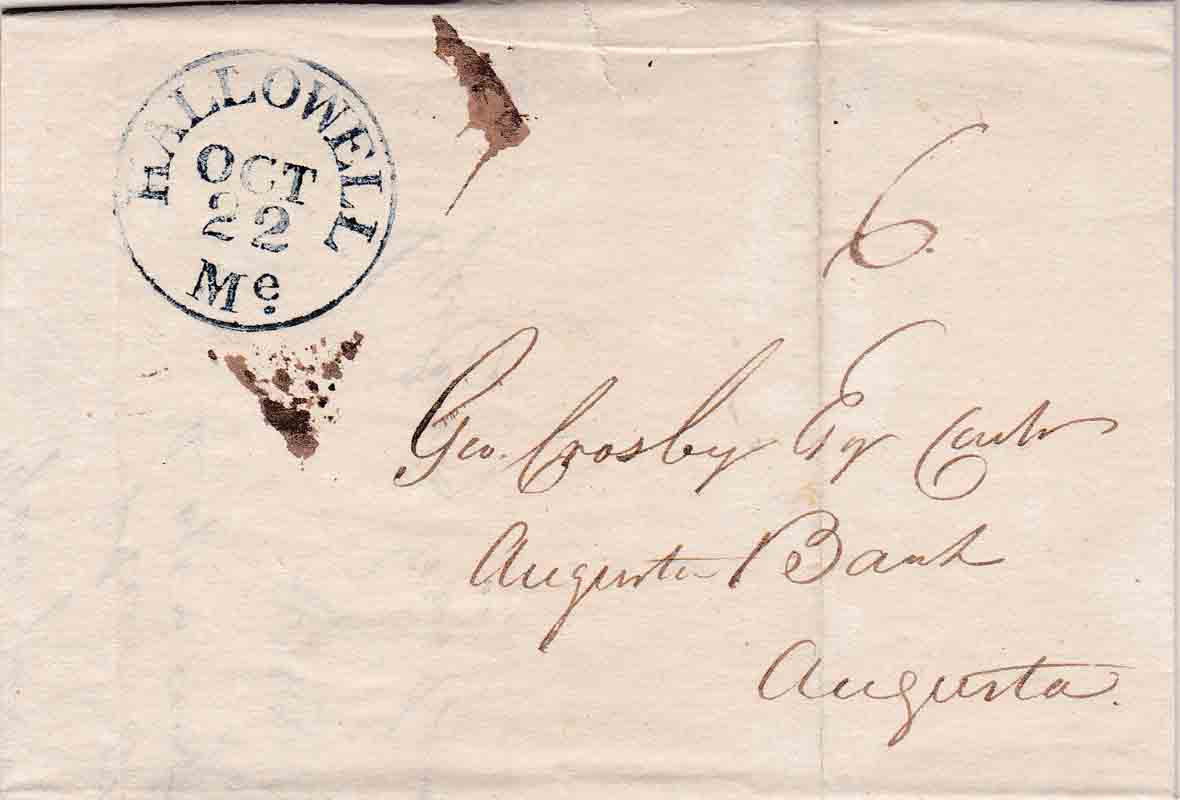 HALLOWELL
OCT
22
Me.
6.
Geo. Crosby Esq Cash
Augusta Bank
Augusta.